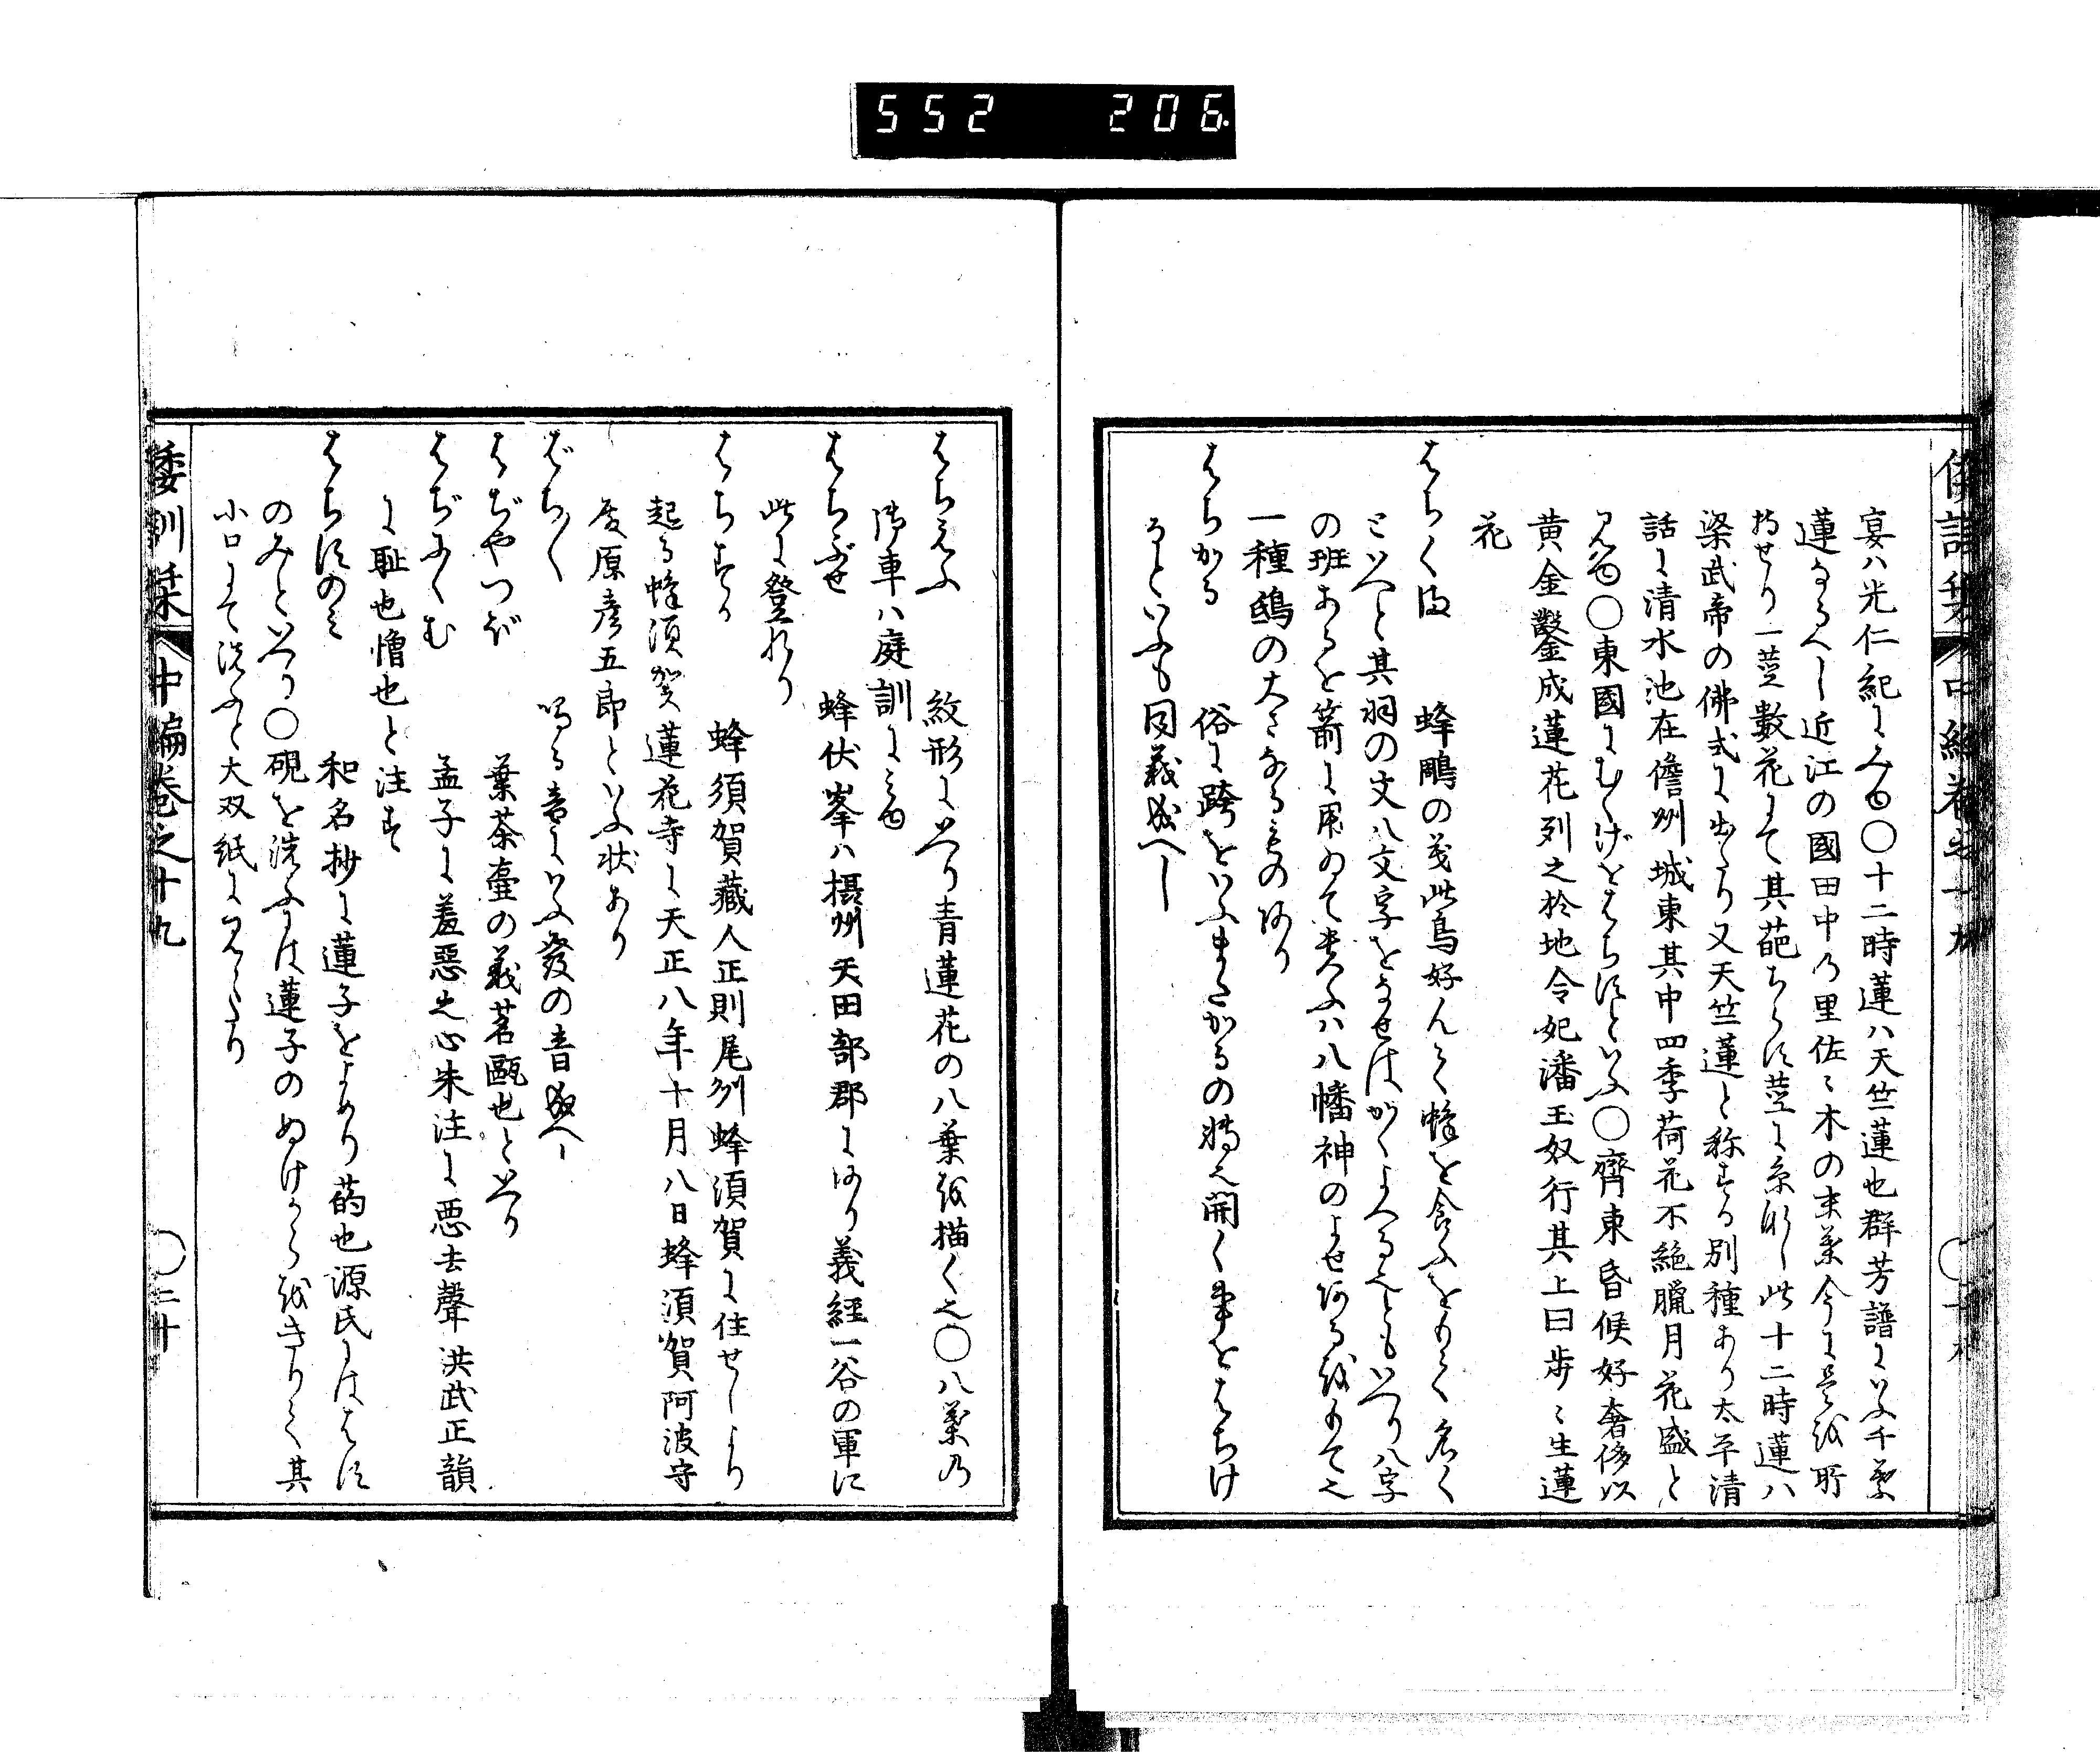 552 206
宴ハ光仁紀にみゆ〇十二時蓮ハ天竺蓮也群芳譜にいふ千葉
蓮なるへし近江の國田中乃里佐々木の末葉今に是を所
持せり一莖數花にて其葩ちらす莖に糸なし此十二時蓮ハ
梁武帝の佛式に出たり又天竺蓮と称する別種あり太平清
話に清水池在儋州城東其中四季荷花不絶臘月花盛と
見ゆ〇東國にむくげをはちすといふ〇齊東昏候好奢侈以
黄金鑿成蓮花列之於地令妃潘玉奴行其上曰歩々生蓮
花
はちくま 蜂鵰の義此鳥好んて蜂を食ふをもて名く
といへと其羽の文八文字をなせはかくよへるともいへり八字
の班あるを箭に用ゐて美ふハ八幡神のよせある故もて也
一種鴟の大さなるものあり
はちかる 俗に跨をいふまたかるの轉也開く事をはちけ
るといふも同義成へし
はちえふ 紋形にいへり青蓮花の八葉を描く也〇八葉乃
御車ハ庭訓にみゆ
はちぶせ 蜂伏峯ハ摂州天田部郡にあり義經一谷の軍に
此に登れり
はちすか 蜂須賀藏人正則尾州蜂須賀に住せしより
起る蜂須賀蓮花寺に天正八年十月八日蜂須賀阿波守
原彦五郎といふ状あり
ばちく 鳴る音にいふ發の音成へし
はぢやつぼ 葉茶壷の義茗甌也といへり
はぢにくむ 孟子に羞惡之心朱注に悪去聲洪武正韻
に耻也憎也と注す
はちすのみ 和名抄に蓮子をよめり菂也源氏にははす
のみといへり〇硯を洗ふには蓮子のぬけからをきりて其
小口にて洗ふと大双紙に見えたり
倭訓栞 中編巻之十九 〇二十